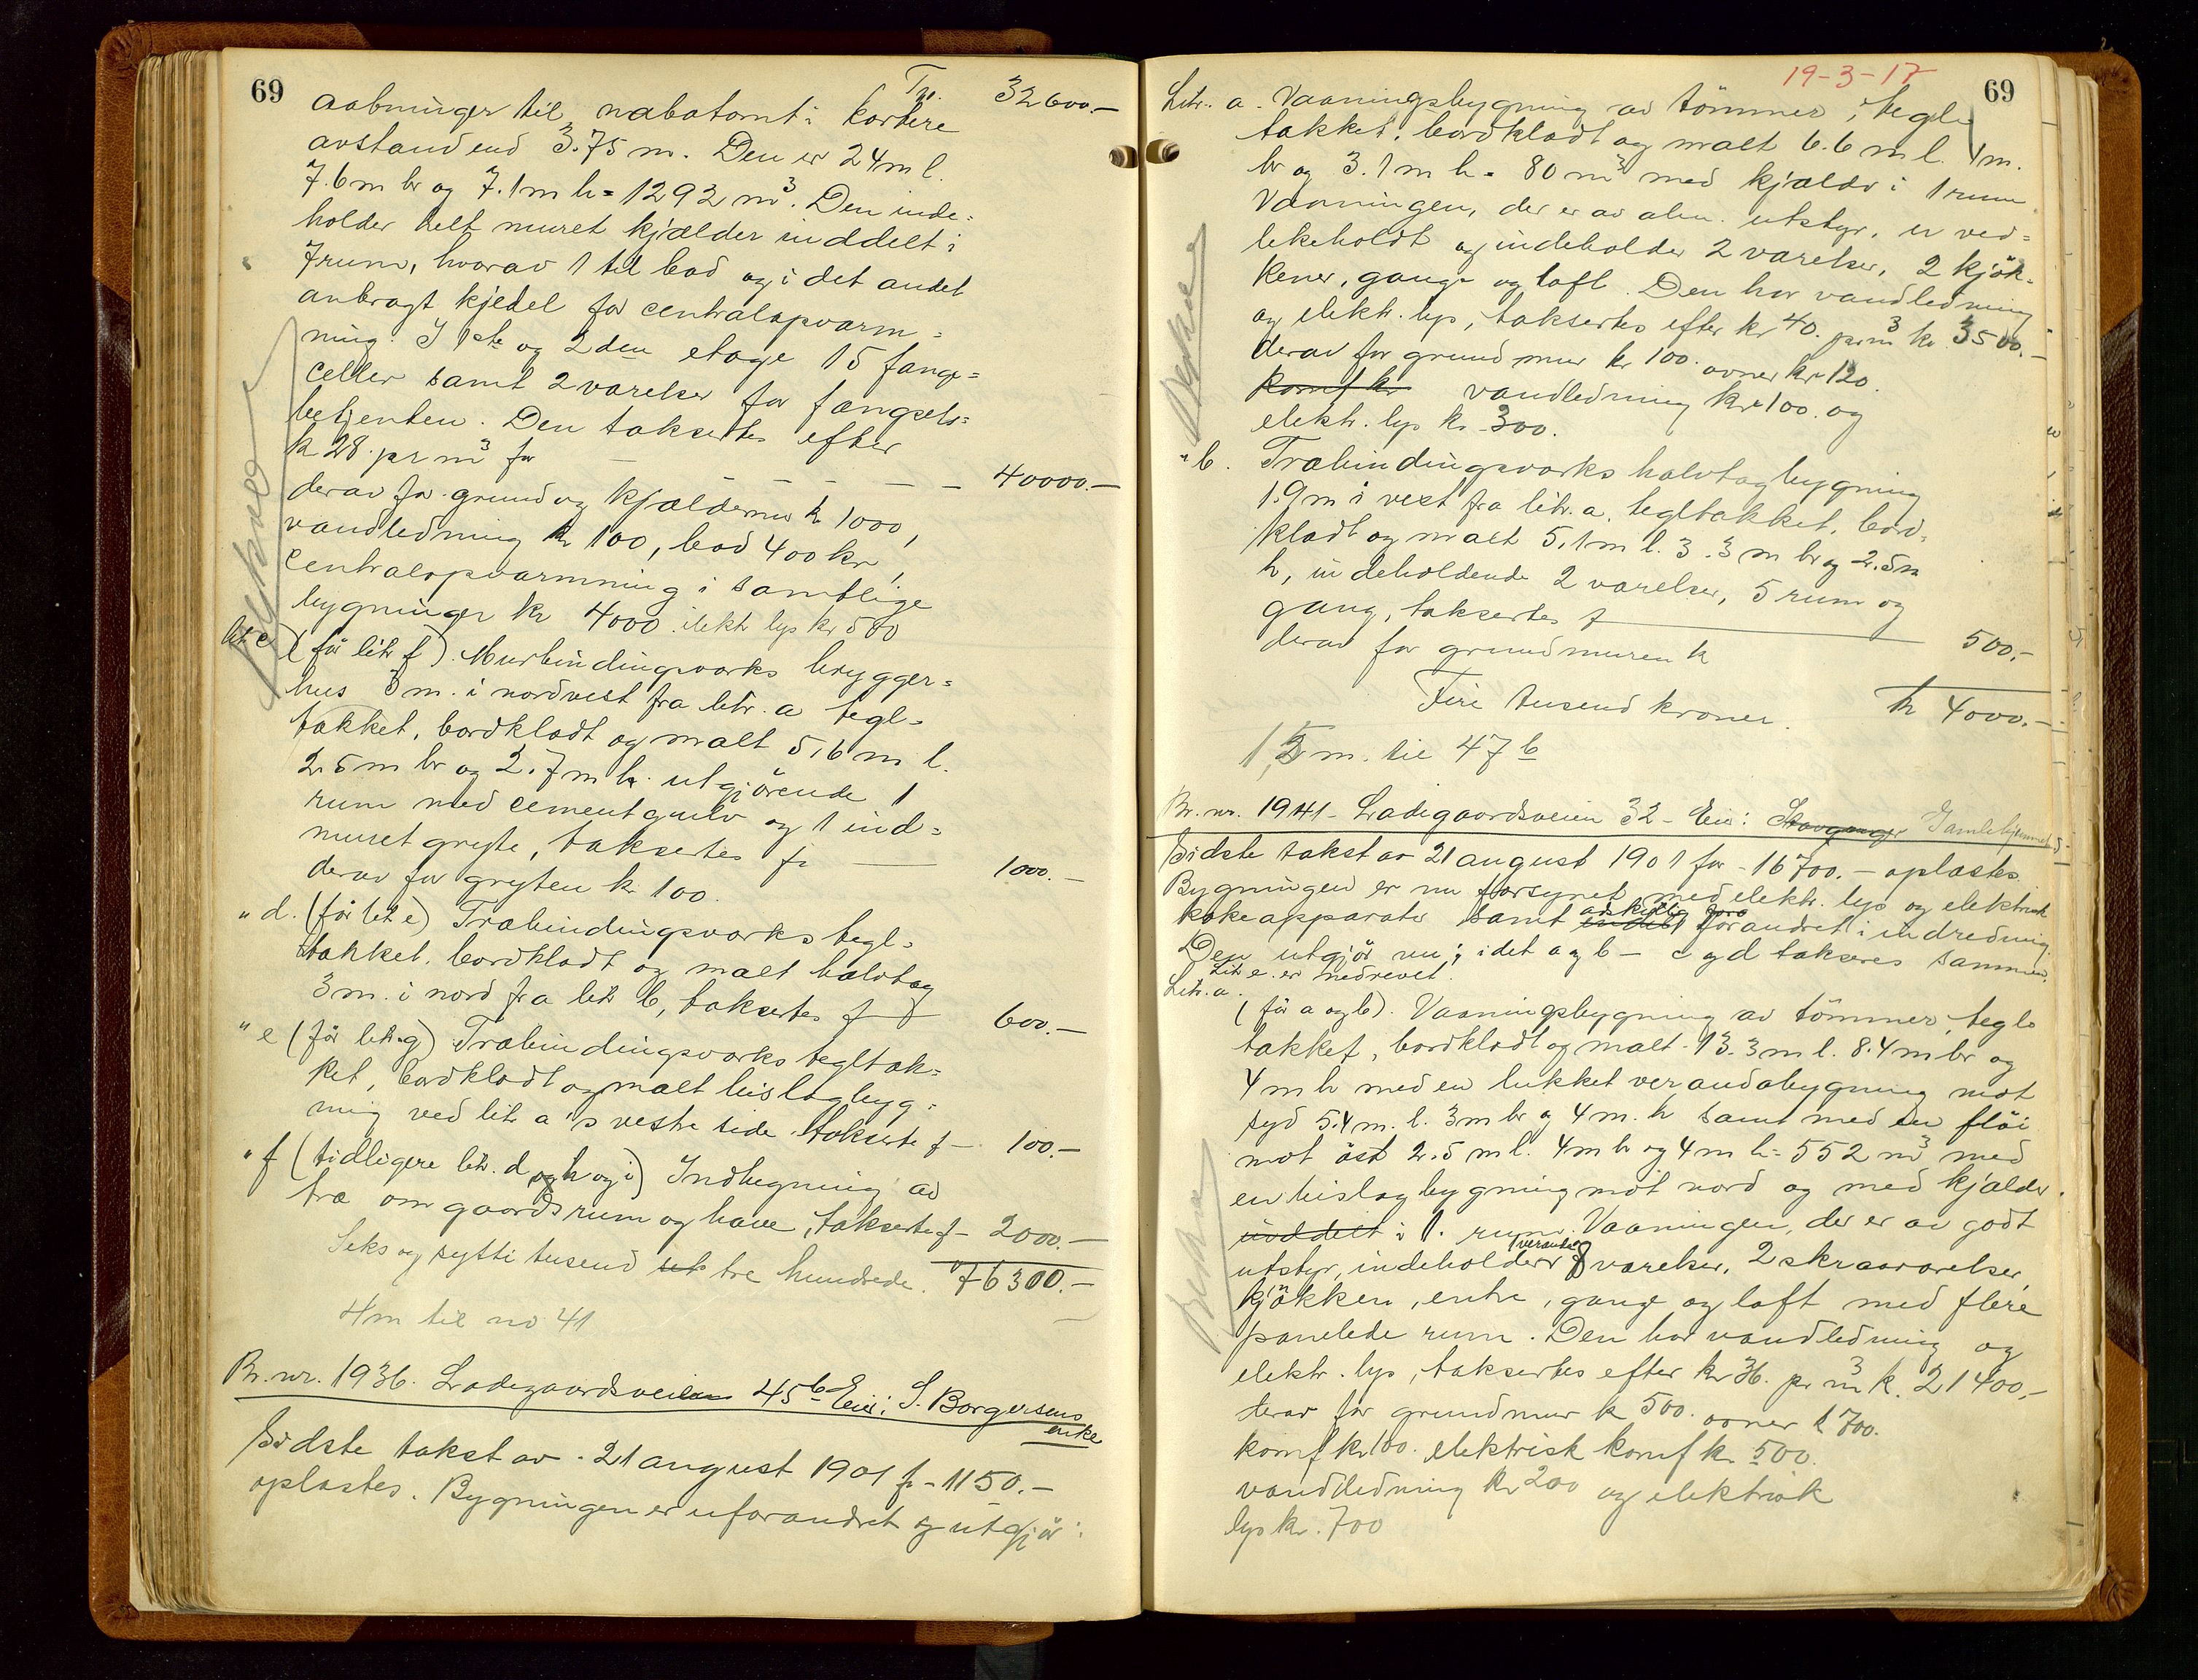 69
Tr. 32600.-
aabninger til nabotomt i kortere
avstand end 3.75 m. Den er 24 m l.
7.6 m br og 7.1 m h = 1292 m³. Den inde=
holder helt muret kjælder inddelt i
7 rum, hvorav 1 til bad og i det andet
anbragt kjedel for centralopvarm=
ning. I 1ste og 2den etage 15 fange=
celler samt 2 værelser for fængsels=
betjenten. Den taksertes efter
kr 28. pr m³ for — — — — — 40000.-
derav for grund og kjældermur kr 1000,
vandledning kr 100, bad 400 kr,
centralopvarmning i samtlige
bygninger kr 4000. elektr lys kr 500
litr c (før litr f). Murbindingsverks brygger=
hus 3 m. i nordvest fra litr. a tegl=
takket, bordklædt og malt 5,6 m l.
2.5 m br og 2.7 m h. utgjørende 1
rum med cementgulv og 1 ind=
muret gryte, taksertes for — 1000.-
derav for gryten kr 100.
" d. (før litr e) Træbindingsverks tegl=
takket, bordklædt og malt halvtag
3 m. i nord fra litr b, taksertes f — 600.-
" e (før litr g) Træbindingsverks tegltak=
ket, bordklædt og malt bislagbyg=
ning ved litr a's vestre side takserte f — 100.-
" f (tidligere litr. d og h og i) Indhegning av
træ om gaardsrum og have, taksertes f — 2000.-
Seks og sytti tusend tre hundrede. 76300.-
4m til no 41
Br. nr. 1936. Ladegaardsveien 45 b Eier: S. Borgersens
enke
Sidste takst av 21 august 1901 fr - 1150.-
oplæstes. Bygningen er uforandret og utgjør:
19-3-17
69
Litr. a. Vaaningsbygning av tømmer, tegl=
takket, bordklædt og malt 6.6 m l. 4 m.
br og 3.1 m h = 80 m³ med kjælder i 1 rum
Vaaningen, der er av alm. utstyr, er ved=
likeholdt og indeholder 2 værelser, 2 kjøk=
kener, gange og loft. Den har vandledning
og elektr. lys, taksertes efter kr 40. pr m³ kr. 3500.-
derav for grundmur kr 100. ovner kr 120.
komf kr vandledning kr 100. og
elektr. lys kr 300.
" b. Træbindingsverks halvtagbygning
1.9 m i vest fra litr. a, tegltakket, bord=
klædt og malt 5.1 m l. 3.3 m br og 2.5 m
h, indeholdende 2 værelser, 5 rum og
gang, taksertes f — 500.-
derav for grundmuren kr
Fire tusend kroner. kr 4000.-
m. til 47 b
Br. nr. 1941 - Ladegaardsveien 32 - Eier: Gamlehjemmet
Sidste takst av 21 august 1901 for - 16700.- oplæstes.
Bygningen er nu forsynet med elektr. lys og elektrisk
kokeapparater samt adskillig forandret i indredning.
Den utgjør nu; idet a og b - c og d takseres sammen.
Litr e. er nedrevet.
Litr. a.
(før a og b). Vaaningsbygning av tømmer, tegl=
takket, bordklædt og malt 13.3 m l. 8.4 m br og
4 m h med en lukket verandabygning mot
syd 5.4 m. l. 3 m br og 4 m. h samt med en fløi
mot øst 2.5 m l. 4 m br og 4 m h = 552 m³ med
en bislagbygning mot nord og med kjælder
inddelt i 1. rum. Vaaningen, der er av godt
utstyr, indeholder 1 veranda 8 værelser, 2 skraaværelser,
kjøkken, entre, gange og loft med flere
panelede rum. Den har vandledning og
elektr. lys, taksertes efter kr 36. pr m³ kr. 21400,-
derav for grundmur kr 500. ovner kr 700.
komf kr 100. elektrisk komf kr. 500.
vandledning kr 200 og elektrisk
lys kr. 700